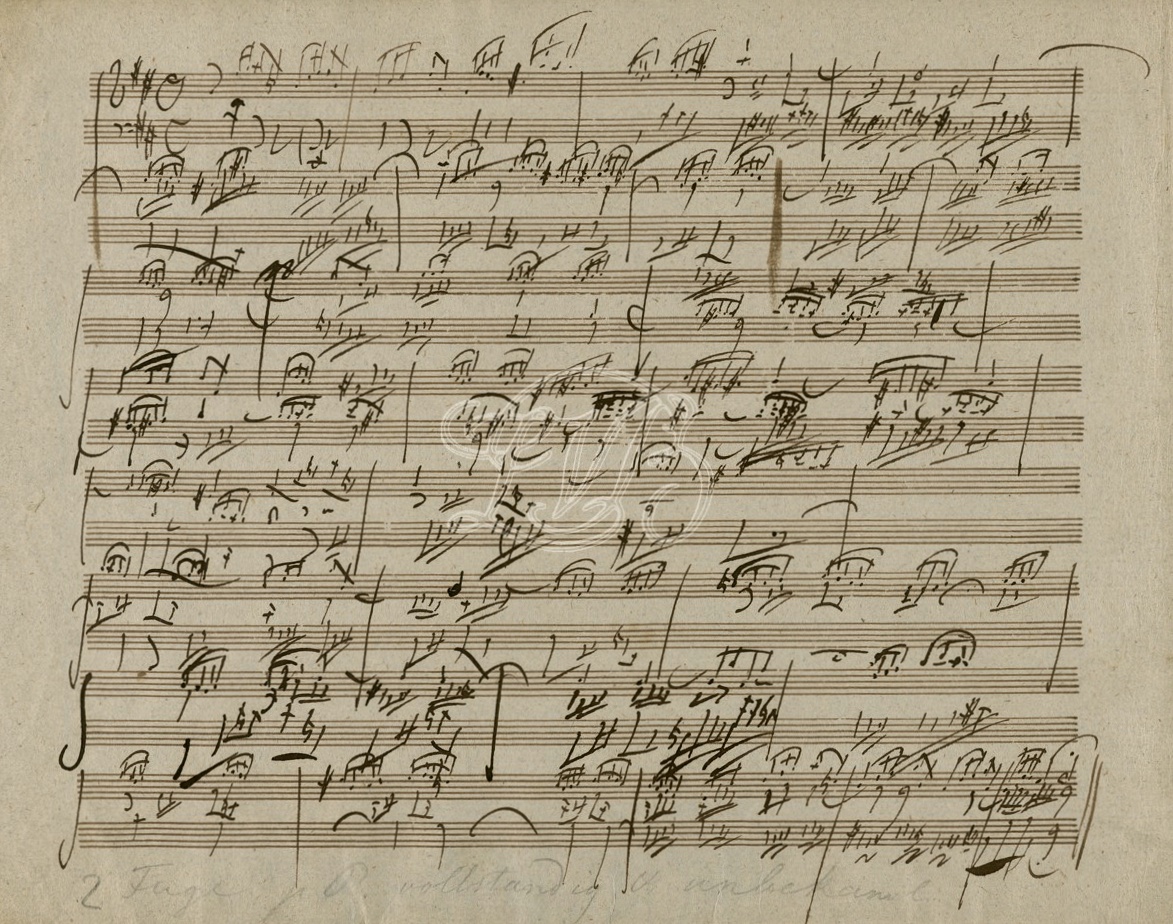 LVB
2 Fuge
vollständig u unbekannt